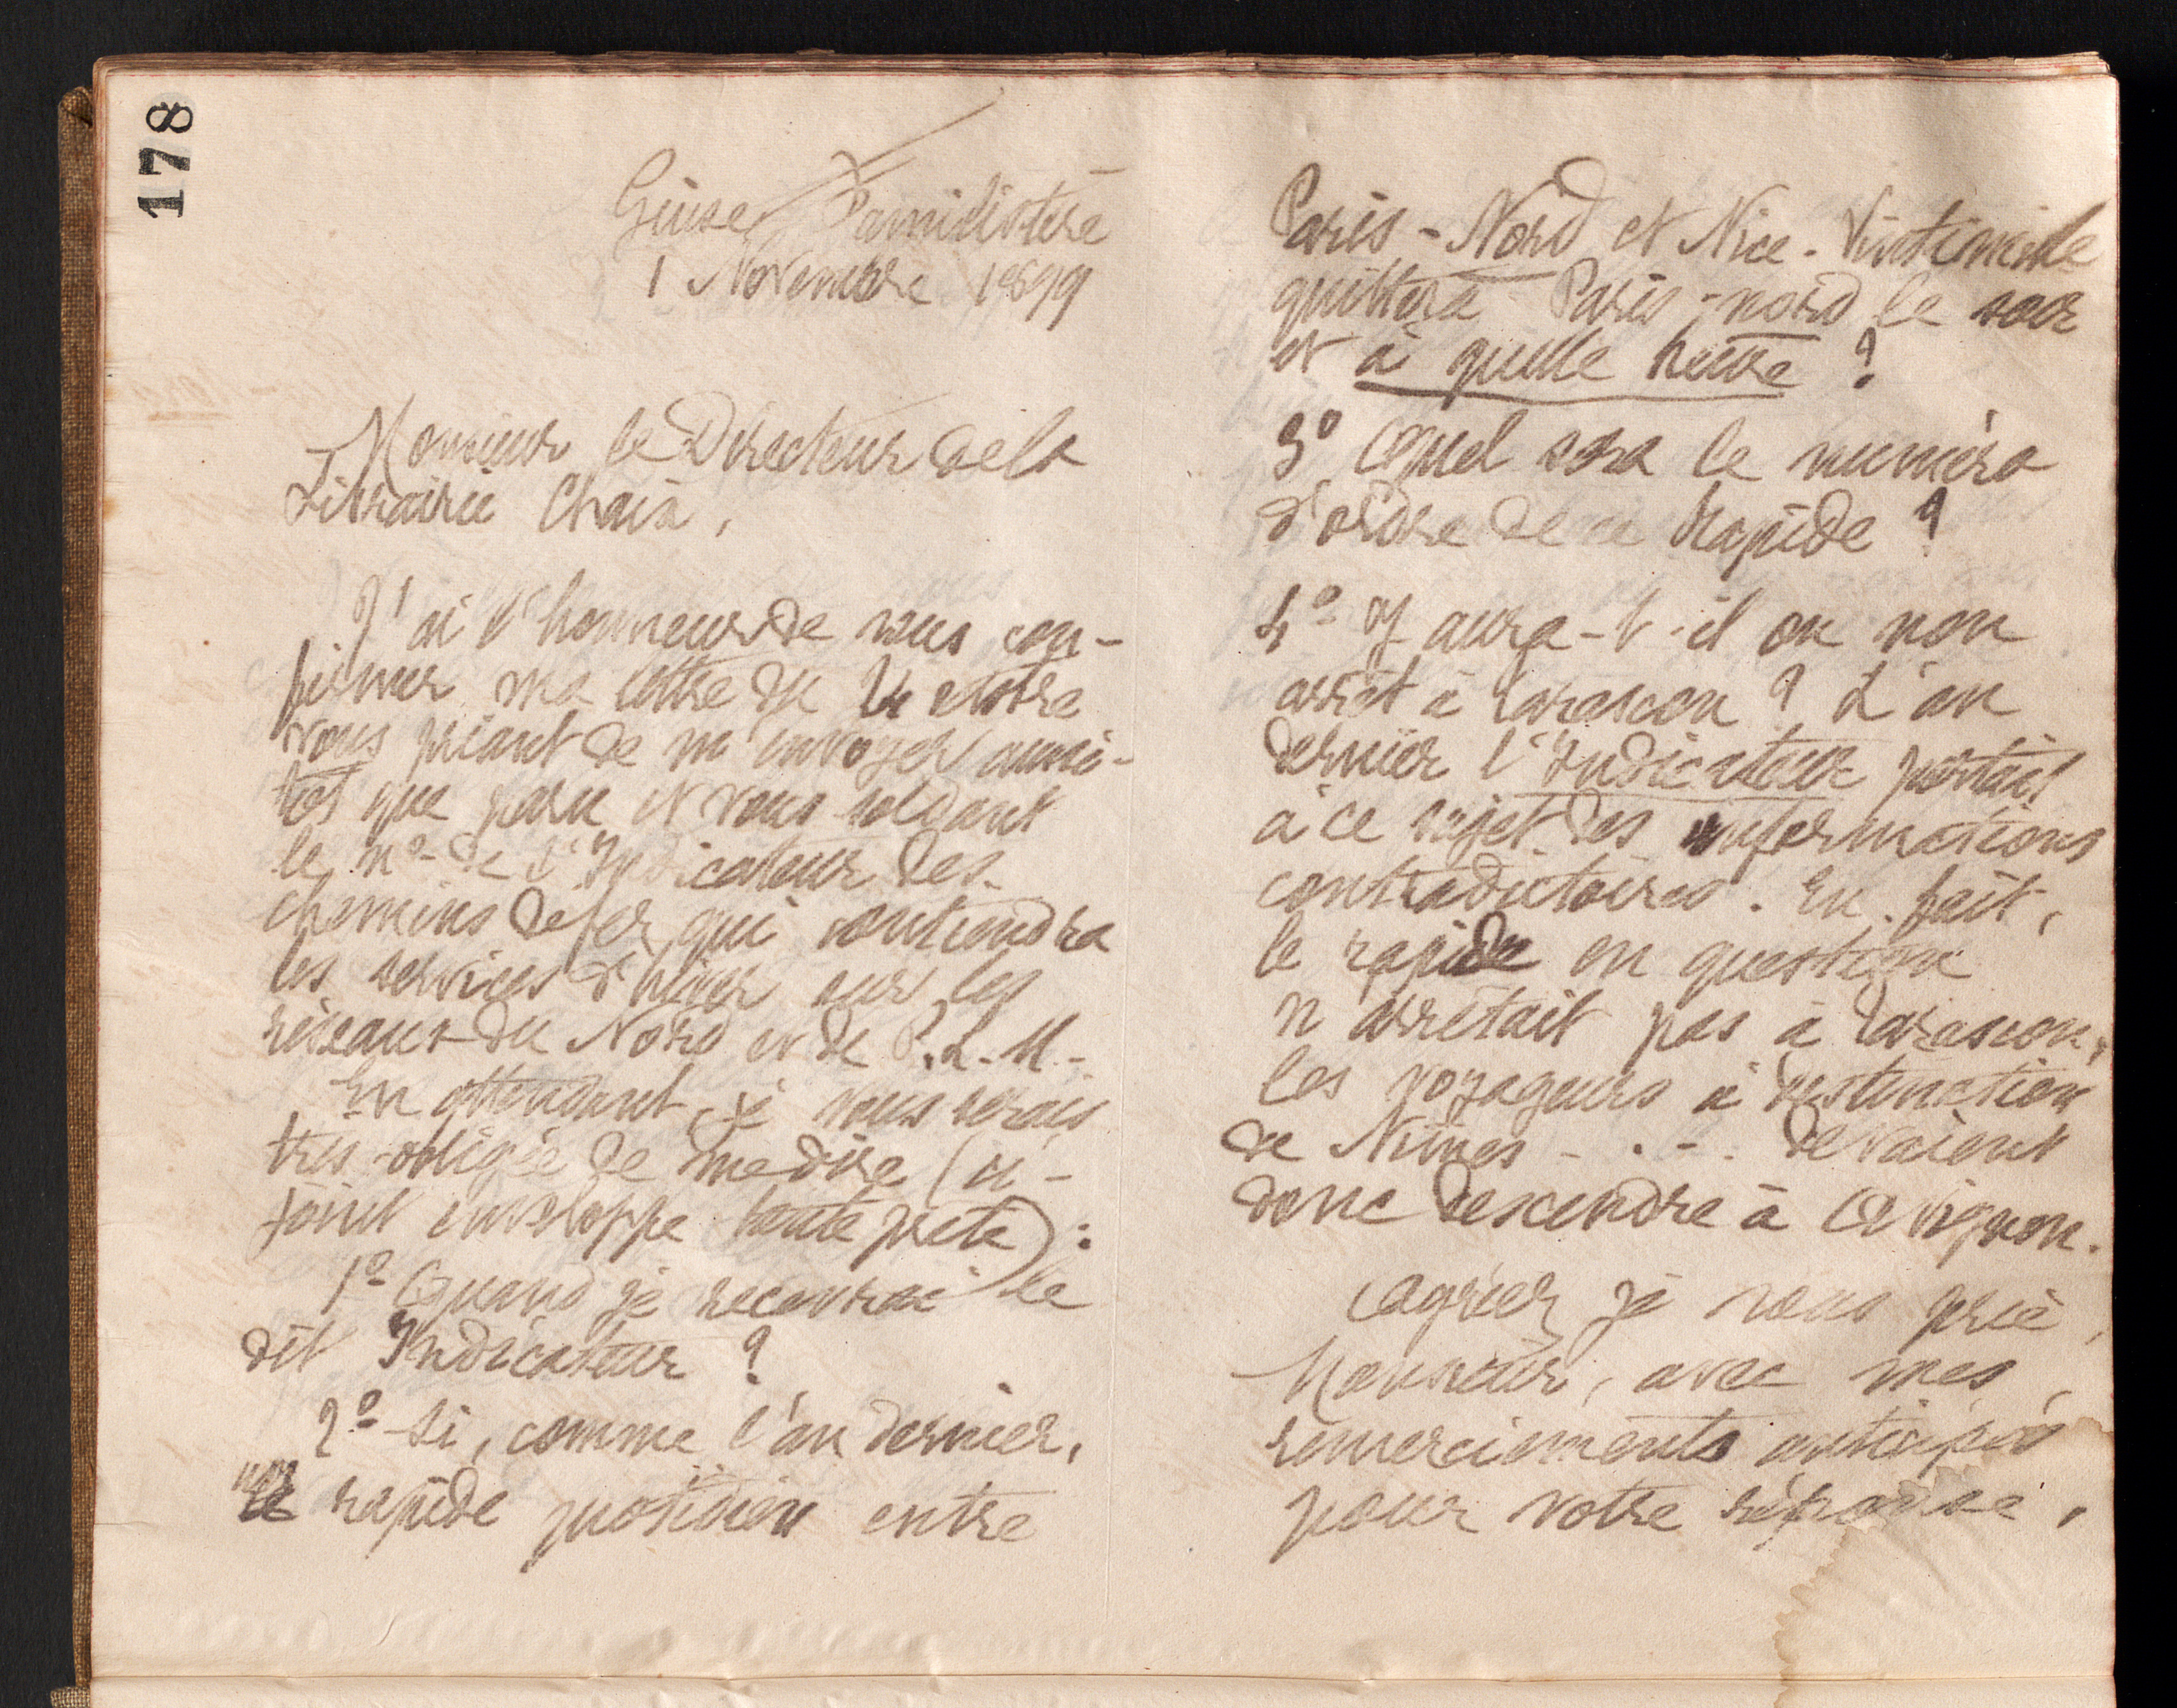 178
Guise Familistère
1 Novembre 1899
Monsieur le Directeur de la
Librairie Chaix,
J'ai l'honneur de vous con-
firmer ma lettre du 24 octobre
vous priant de m'envoyer aussi-
tôt que paru et vous soldant
le nº de l'Indicateur des
chemins de fer qui contiendra
les services d'hiver sur les
réseaux du Nord et de P.L.M.
En attendant, je vous serais
très obligée de me dire (ci-
joint enveloppe toute prête) :
1º Quand je recevrai le
dit Indicateur ?
2º Si, comme l'an dernier,
le rapide quotidien entre
Paris-Nord et Nice-Vintimille
quittera Paris-nord le soir
et à quelle heure ?
3º Quel sera le numéro
d'ordre de ce rapide ?
4º Y aura-t-il ou non
arrêt à Tarascon ? L'an
dernier l'Indicateur portait
à ce sujet des informations
contradictoires. En fait,
le rapide en question
n'arrêtait pas à Tarascon,
les voyageurs à destination
de Nîmes - . - . devaient
donc descendre à Avignon.
Agréer je vous prie,
Monsieur, avec mes
remerciements anticipés
pour votre réponse,